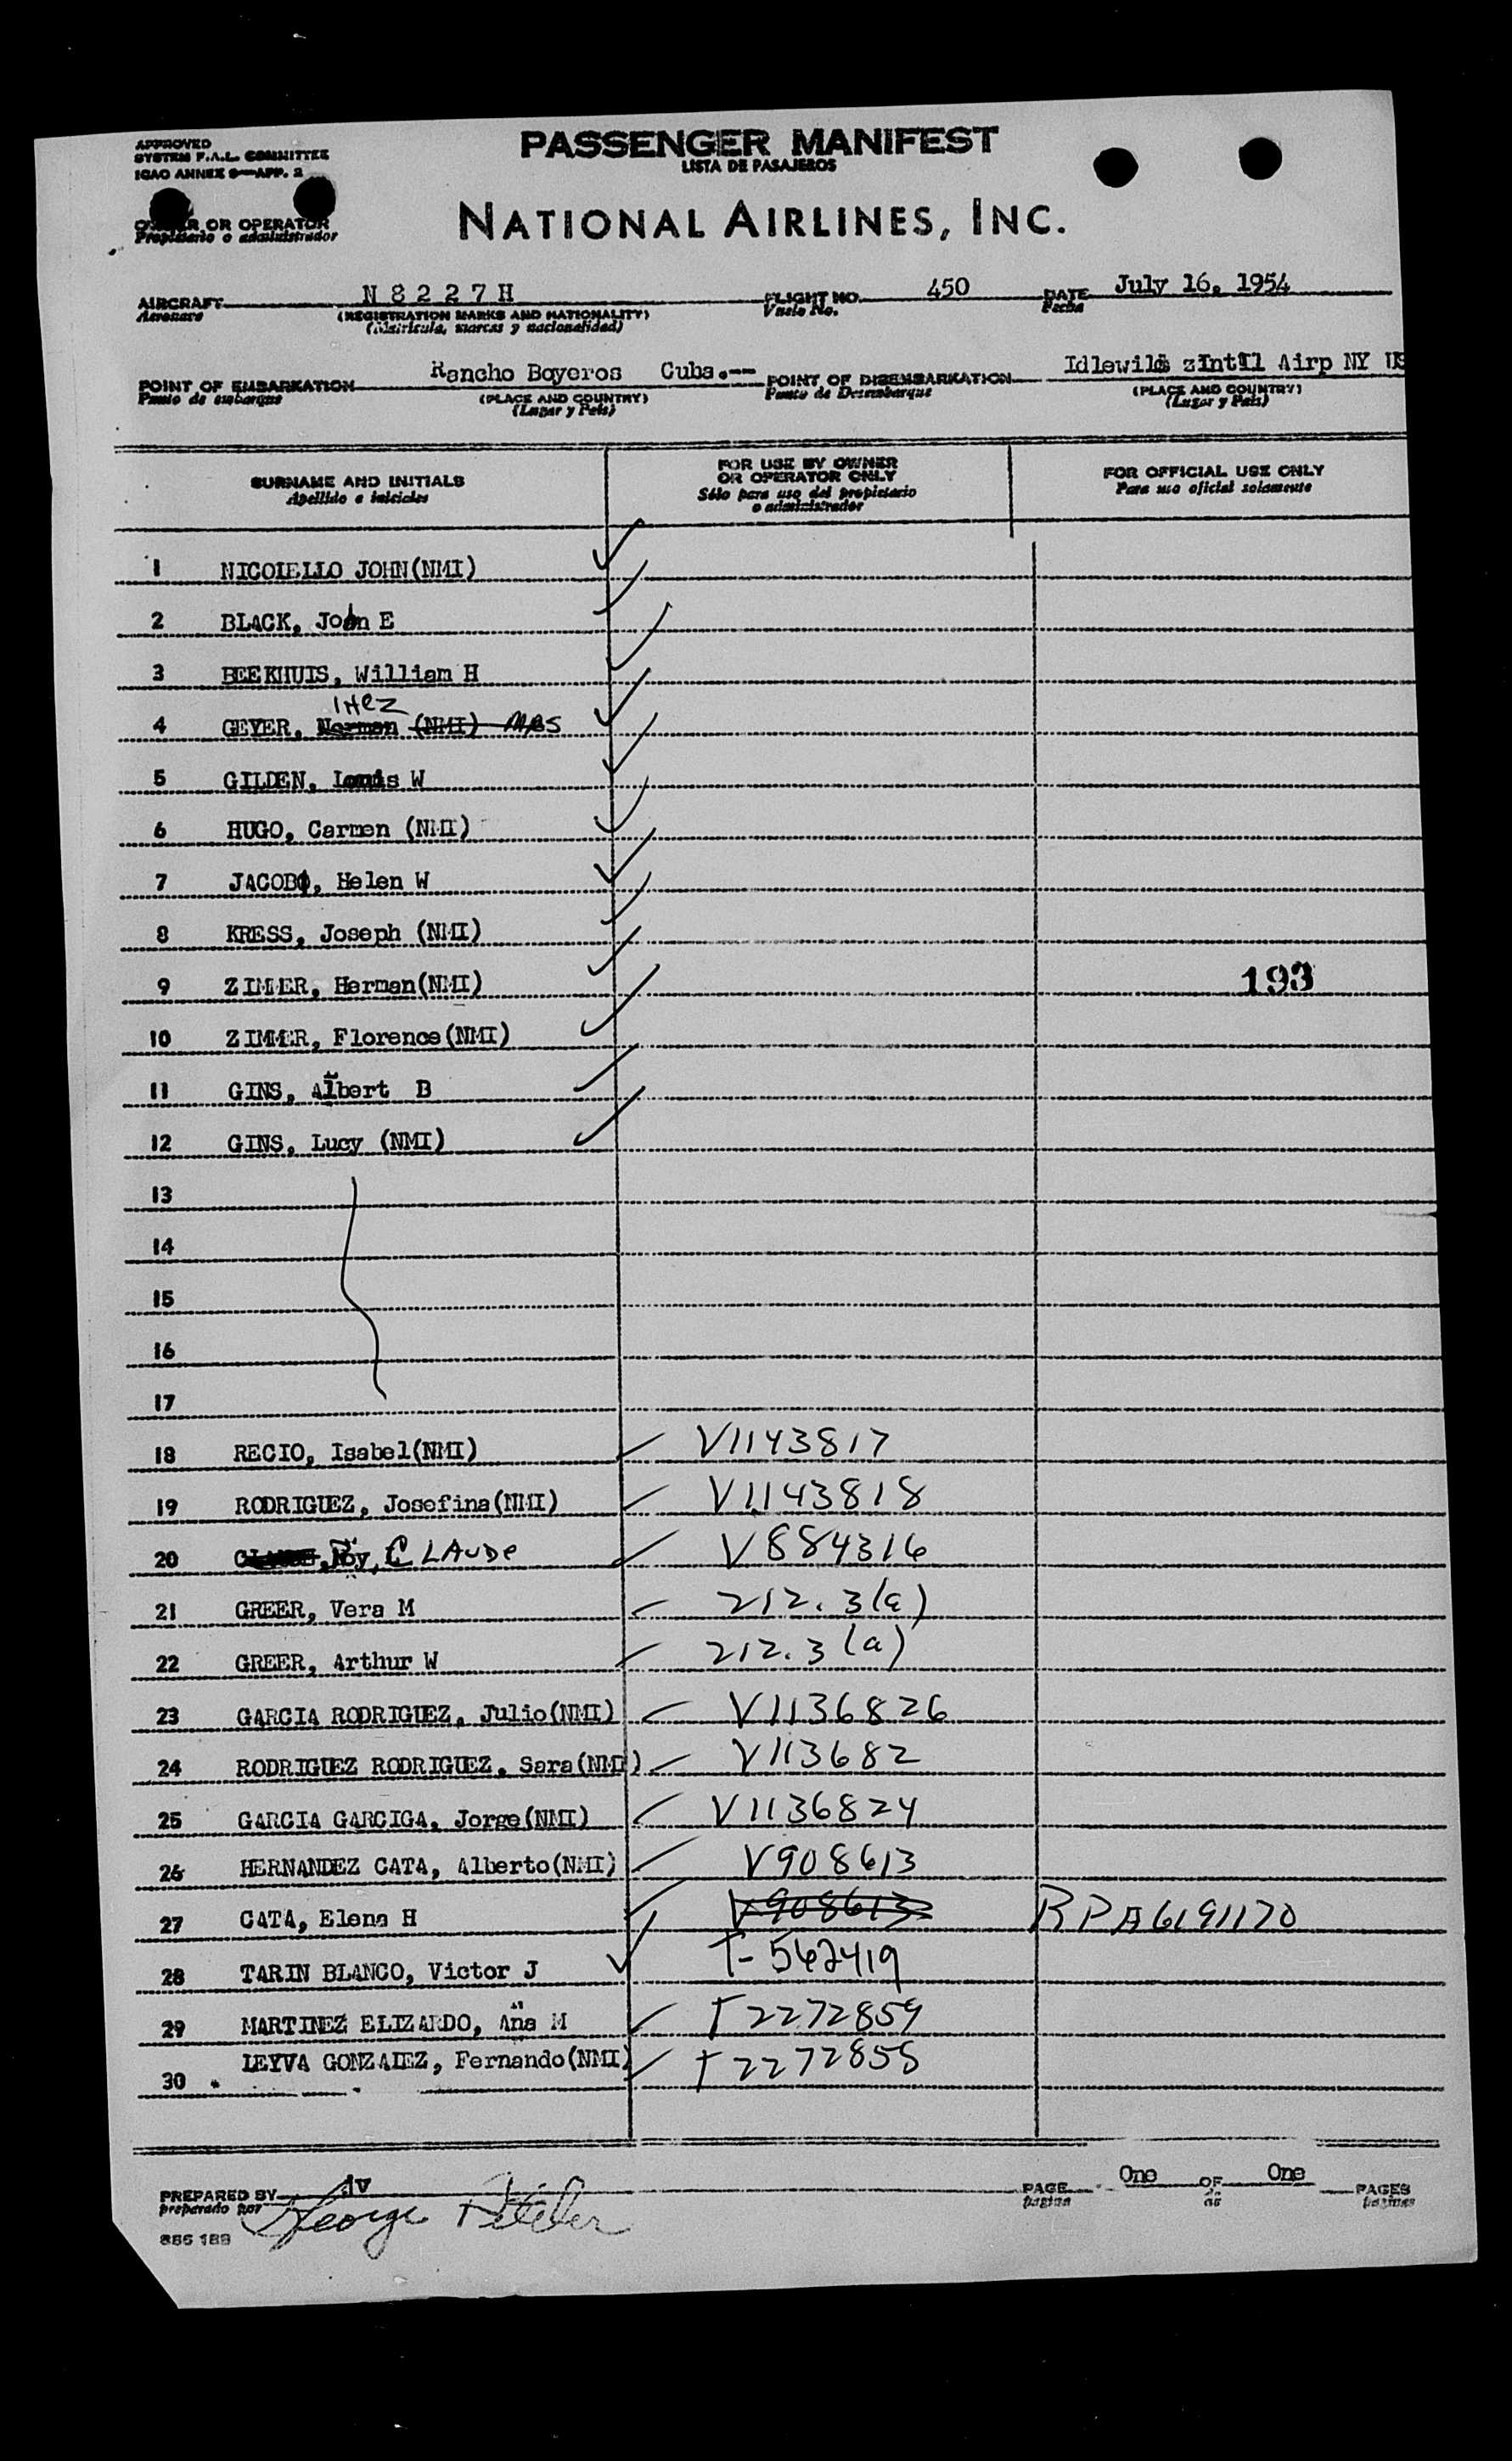 APPROVED
SYSTEM F.A.L. COMMITTEE
ICAO ANNEX 9—APP. 2
PASSENGER MANIFEST
LISTA DE PASAJEROS
OWNER OR OPERATOR
Propietario o administrador
NATIONAL AIRLINES, INC.
AIRCRAFT N 8 2 2 7 H FLIGHT NO. 450 DATE July 16, 1954
Aeronave (REGISTRATION MARKS AND NATIONALITY) Vuelo No. Fecha
(Matrícula, marcas y nacionalidad)
POINT OF EMBARKATION Rancho Boyeros Cuba.-- POINT OF DISEMBARKATION Idlewild Airp NY US
Punto de embarque (PLACE AND COUNTRY) Punto de Desembarque (PLACE AND COUNTRY)
(Lugar y País) (Lugar y País)
SURNAME AND INITIALS FOR USE BY OWNER OR OPERATOR ONLY FOR OFFICIAL USE ONLY
Apellido e iniciales Sólo para uso del propietario o administrador Para uso oficial solamente
1 NICOLELLO JOHN(NMI)
2 BLACK, John E
3 BEEKHUIS, William H
4 GEYER, Norman INEZ (NMI) MRS
5 GILDEN, Louis W
6 HUGO, Carmen (NMI)
7 JACOB, Helen W
8 KRESS, Joseph (NMI)
9 ZIMMER, Herman(NMI) 193
10 ZIMMER, Florence(NMI)
11 GINS, Albert B
12 GINS, Lucy (NMI)
13
14
15
16
17
18 RECIO, Isabel(NMI) V1143817
19 RODRIGUEZ, Josefina(NMI) V1143818
20 Roy, CLAUDE V884316
21 GREER, Vera M 212.3(a)
22 GREER, Arthur W 212.3(a)
23 GARCIA RODRIGUEZ, Julio(NMI) V1136826
24 RODRIGUEZ RODRIGUEZ, Sara(NMI) V113682
25 GARCIA GARCIGA, Jorge(NMI) V1136824
26 HERNANDEZ CATA, Alberto(NMI) V908613
27 CATA, Elena H V908613 RPA6191170
28 TARIN BLANCO, Victor J T-562419
29 MARTINEZ ELIZARDO, Ana M T2272859
30 LEYVA GONZALEZ, Fernando(NMI) T2272858
PREPARED BY PAGE One OF One PAGES
preparado por George página de páginas
886 188